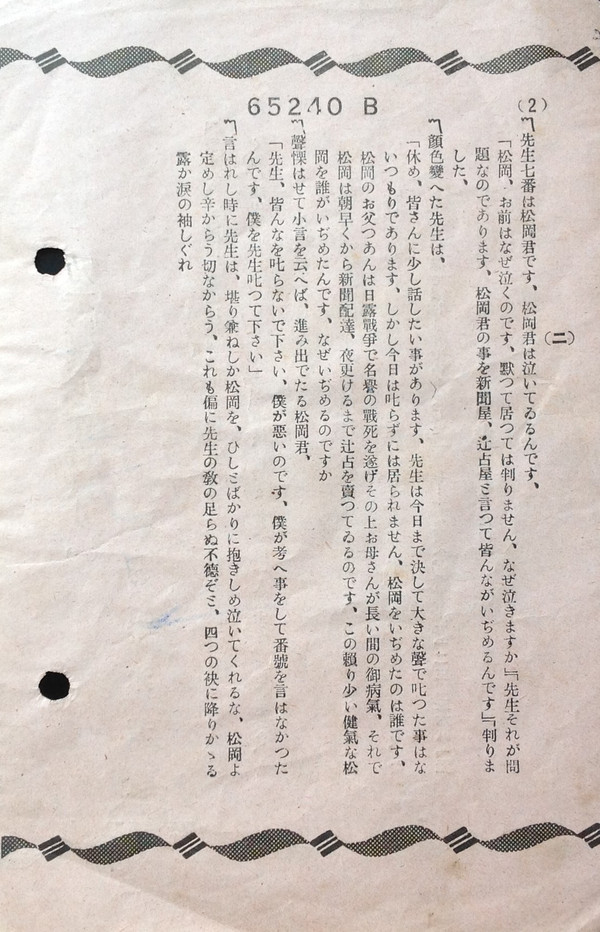 65240 B
(2)
(二)
﹁先生七番は松岡君です、松岡君は泣いてゐるんです、
「松岡、お前はなぜ泣くのです、默つて居つては判りません、なぜ泣きますか』『先生それが問
題なのであります、松岡君の事を新聞屋、辻占屋ミ言つて皆んながいぢめるんです』『判りま
した、
﹁顏色變へた先生は、
「休め、皆さんに少し話したい事があります、先生は今日まで決して大きな聲で叱つた事はな
いつもりであります、しかし今日は叱らずには居られません、松岡をいぢめたのは誰です、
松岡のお父つあんは日露戰爭で名譽の戰死を遂げその上お母さんが長い間の御病氣、それで
松岡は朝早くから新聞配達、夜更けるまで辻占を賣つてゐるのです、この賴り少い健氣な松
岡を誰がいぢめたんです、なぜいぢめるのですか
﹁聲慄はせて小言を云へば、進み出でたる松岡君、
「先生、皆んなを叱らないで下さい、僕が惡いのです、僕が考へ事をして番號を言はなかつた
んです、僕を先生叱つて下さい」
﹁言はれし時に先生は、堪り兼ねしか松岡を、ひしミばかりに抱きしめ泣いてくれるな、松岡よ
定めし辛からう切なからう、これも偏に先生の敎の足らぬ不德ぞミ、四つの袂に降りかゝる
露か淚の袖しぐれ